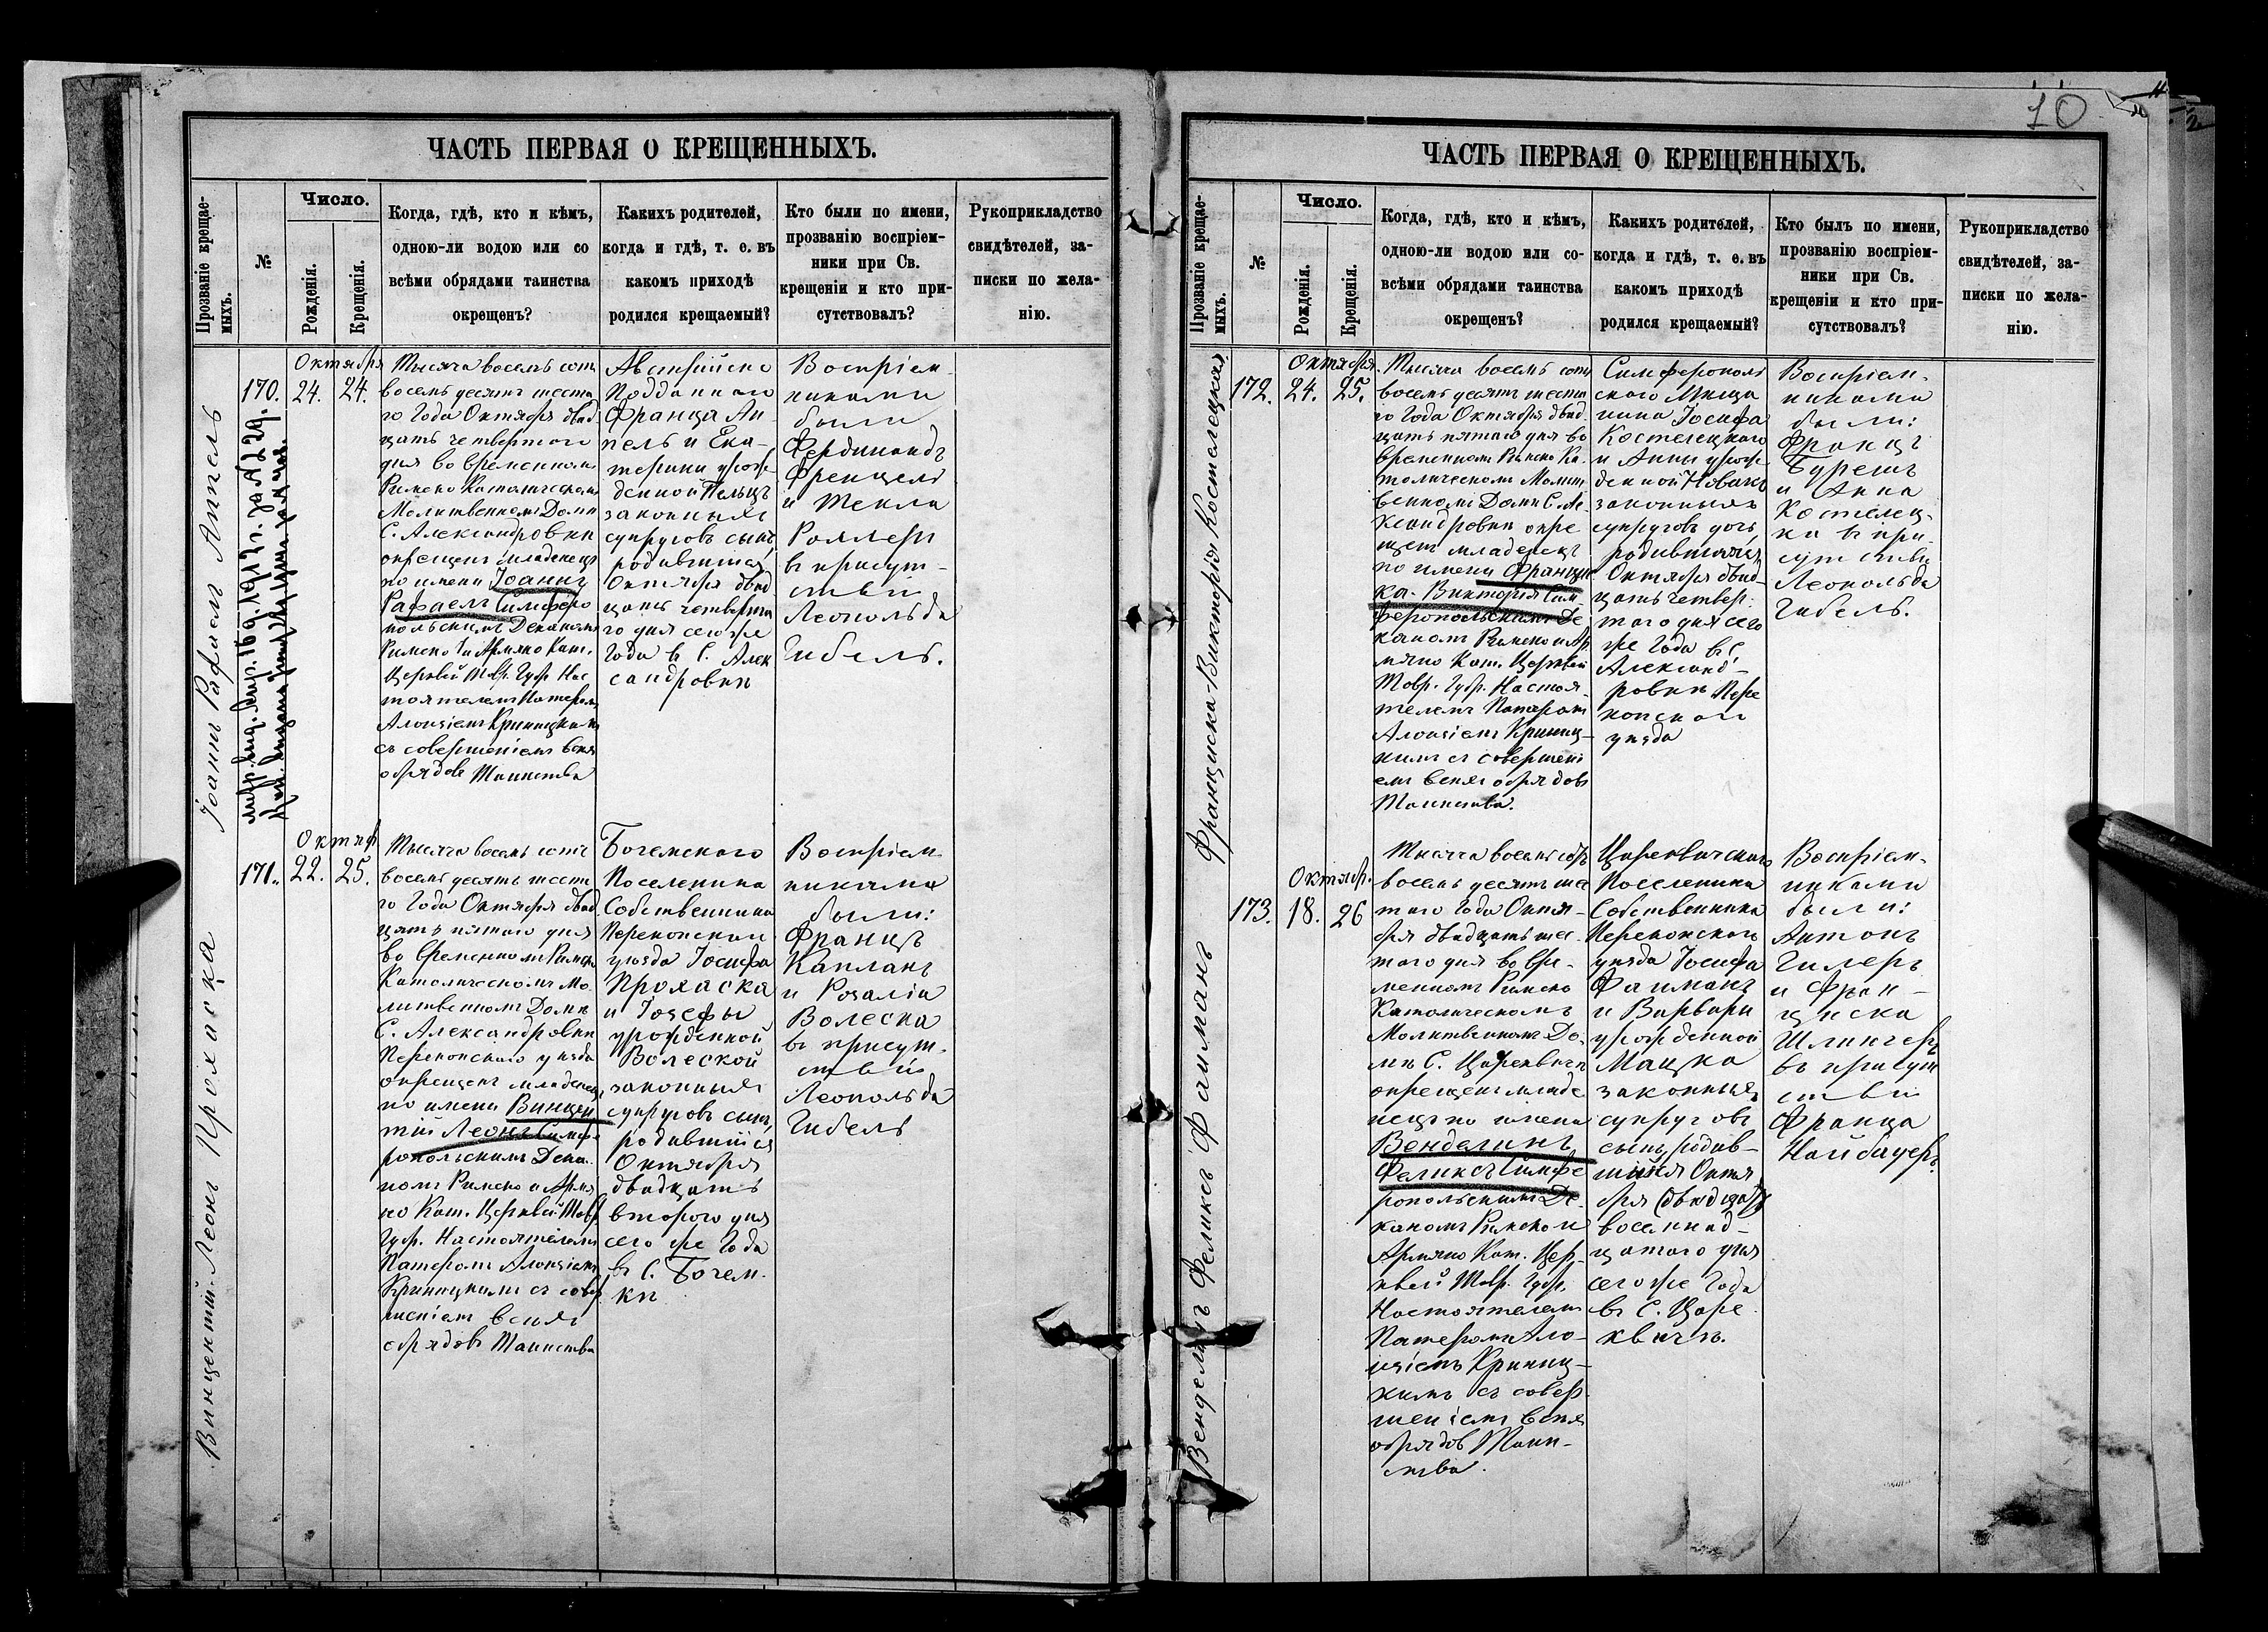 10
ЧАСТЬ ПЕРВАЯ О КРЕЩЕННЫХЪ.
Прозваніе крещае-
мыхъ.
№
Число.
Рожденія.
Крещенія.
Когда, гдѣ, кто и кѣмъ,
одною-ли водою или со
всѣми обрядами таинства
окрещенъ?
Какихъ родителей,
когда и гдѣ, т. е. въ
какомъ приходѣ
родился крещаемый?
Кто были по имени,
прозванію воспріем-
ники при Св.
крещеніи и кто при-
сутствовалъ?
Рукоприкладство
свидѣтелей, за-
писки по жела-
нію.
Іоаннъ Рафаелъ Аппель
170.
Октября
24.
24.
Тысяча восемь сотъ
восемь десятъ шеста
го Года Октября двад
цать четвертого
дня во временномъ
Римско Католическомъ
Молитвенномъ Домѣ
С. Александровки
окрещенъ младенецъ
по имени Іоаннъ
Рафаелъ Симферо
польскимъ Деканомъ
Римско и Армяно Кат.
Церквей Тавр. Губ. Нас
тоятелемъ Патеромъ
Алоизіемъ Криницкимъ
съ совершеніемъ всѣхъ
обрядовъ Таинства
Австрійско
Подданного
Франца Ап-
пель и Ека-
терины урож-
денной Пельцъ
законныхъ
супруговъ сынъ
родившійся
Октября двад
цать четверта
го дня сего же
Года въ С. Алек
сандровкѣ
Воспріем-
никами
были
Фердинандъ
Френцель
и Текла
Роллеръ
въ присут-
ствіи
Леопольда
Гибель.
Винцентій-Леонъ Прохаска
171.
Октяб
22.
25.
Тысяча восемь сотъ
восемь десятъ шеста
го Года Октября двад
цать пятого дня
во временномъ Римско
Католическомъ Мо
литвенномъ Домѣ
С. Александровки
Перекопского уѣзда
окрещенъ младенецъ
по имени Винцен
тій Леонъ Симфе
ропольскимъ Дека-
номъ Римско и Армя
но Кат. Церквей Тавр
Губ. Настоятелемъ
Патеромъ Алоизіемъ
Криницкимъ съ совер
шеніемъ всѣхъ
обрядовъ Таинства
Богемского
Поселенина
Собственника
Перекопского
уѣзда Іосифа
Прохаска
и Іозефы
урожденной
Волеской
законныхъ
супруговъ сынъ,
родившійся
Октября
двадцать
второго дня
сего же Года
въ С. Богем-
кѣ
Воспріем
никами
были:
Францъ
Капланъ
и Розалія
Волеска
въ присут-
ствіи
Леопольда
Гибель
ЧАСТЬ ПЕРВАЯ О КРЕЩЕННЫХЪ.
Прозваніе крещае-
мыхъ.
№
Число.
Рожденія.
Крещенія.
Когда, гдѣ, кто и кѣмъ,
одною-ли водою или со-
всѣми обрядами таинства
окрещенъ?
Какихъ родителей,
когда и гдѣ, т. е. въ
какомъ приходѣ
родился крещаемый?
Кто былъ по имени,
прозванію воспріем-
ники при Св.
крещеніи и кто при-
сутствовалъ?
Рукоприкладство
свидѣтелей, за-
писки по жела-
нію.
Франциска-Викторія Костелецкая
172.
Октября
24.
25.
Тысяча восемь сотъ
восемь десятъ шеста
го Года Октября двад
цать пятого дня во
временномъ Римско Ка-
толическомъ Молит
венномъ Домѣ С. Але-
ксандровки окре
щенъ младенецъ
по имени Францис
ка-Викторія Сим
феропольскимъ Де
каномъ Римско и Ар
мяно Кат. Церквей
Тавр. Губ. Настоя-
телемъ Патеромъ
Алоизіемъ Криниц-
кимъ съ совершені
емъ всѣхъ обрядовъ
Таинства.
Симферополь
ского Мѣща
нина Іосифа
Костелецкого
и Анны урож
денной Новакъ
законныхъ
супруговъ дочь,
родившаяся
Октября двад-
цать четвер-
того дня сего
же Года въ С.
Александ-
ровкѣ Пере
копского
уѣзда
Воспріем-
никами
были:
Францъ
Бурешъ
и Анна
Костелец-
ка въ при-
сутствіи
Леопольда
Гибель.
Венделинъ Феликсъ Файманъ
173.
Октябр.
18.
26
Тысяча восемь сотъ
восемь десятъ шес
того Года Октя-
бря двадцать шес
того дня во вре-
менномъ Римско
Католическомъ
Молитвенномъ До-
мѣ С. Цареквичъ
окрещенъ младе
нецъ по имени
Венделинъ
Феликсъ Симфе
ропольскимъ Де
каномъ Римско и
Армяно Кат. Цер-
квей Тавр. Губр.
Настоятелемъ
Патеромъ Ало-
изіемъ Криниц-
кимъ съ совер-
шеніемъ всѣхъ
обрядовъ Таин-
ства.
Цареквичского
Поселенина
Собственника
Перекопского
уѣзда Іосифа
Файманъ
и Варвары
урожденной
Мацка
законныхъ
супруговъ
сынъ, родив-
шійся Октя
бря (двадцать)
восемнад-
цатого дня
сего же Года
въ С. Царе
квичъ.
Воспріем-
никами
были:
Антонъ
Гилеръ
и Фран-
циска
Шлингеръ
въ присут
ствіи
Франца
Найбауеръ